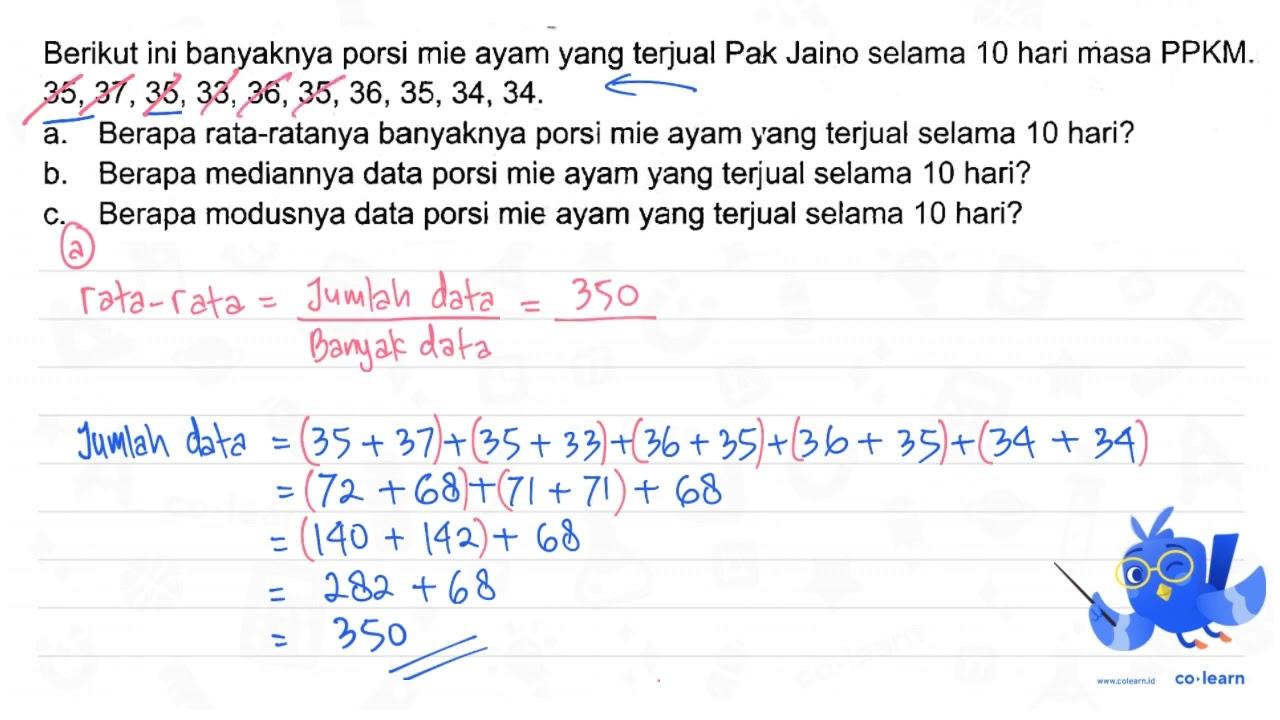 Berikut ini banyaknya porsi mie ayam yang terjual Pak Jaino selama 10 hari masa PPKM.
35, 37, 35, 33, 36, 35, 36, 35, 34, 34.
a. Berapa rata-ratanya banyaknya porsi mie ayam yang terjual selama 10 hari?
b. Berapa mediannya data porsi mie ayam yang terjual selama 10 hari?
c. Berapa modusnya data porsi mie ayam yang terjual selama 10 hari?
a
rata-rata = Jumlah data = 350
Banyak data
Jumlah data = (35 + 37) + (35 + 33) + (36 + 35) + (36 + 35) + (34 + 34)
= (72 + 68) + (71 + 71) + 68
= (140 + 142) + 68
= 282 + 68
= 350
www.colearn.id co·learn